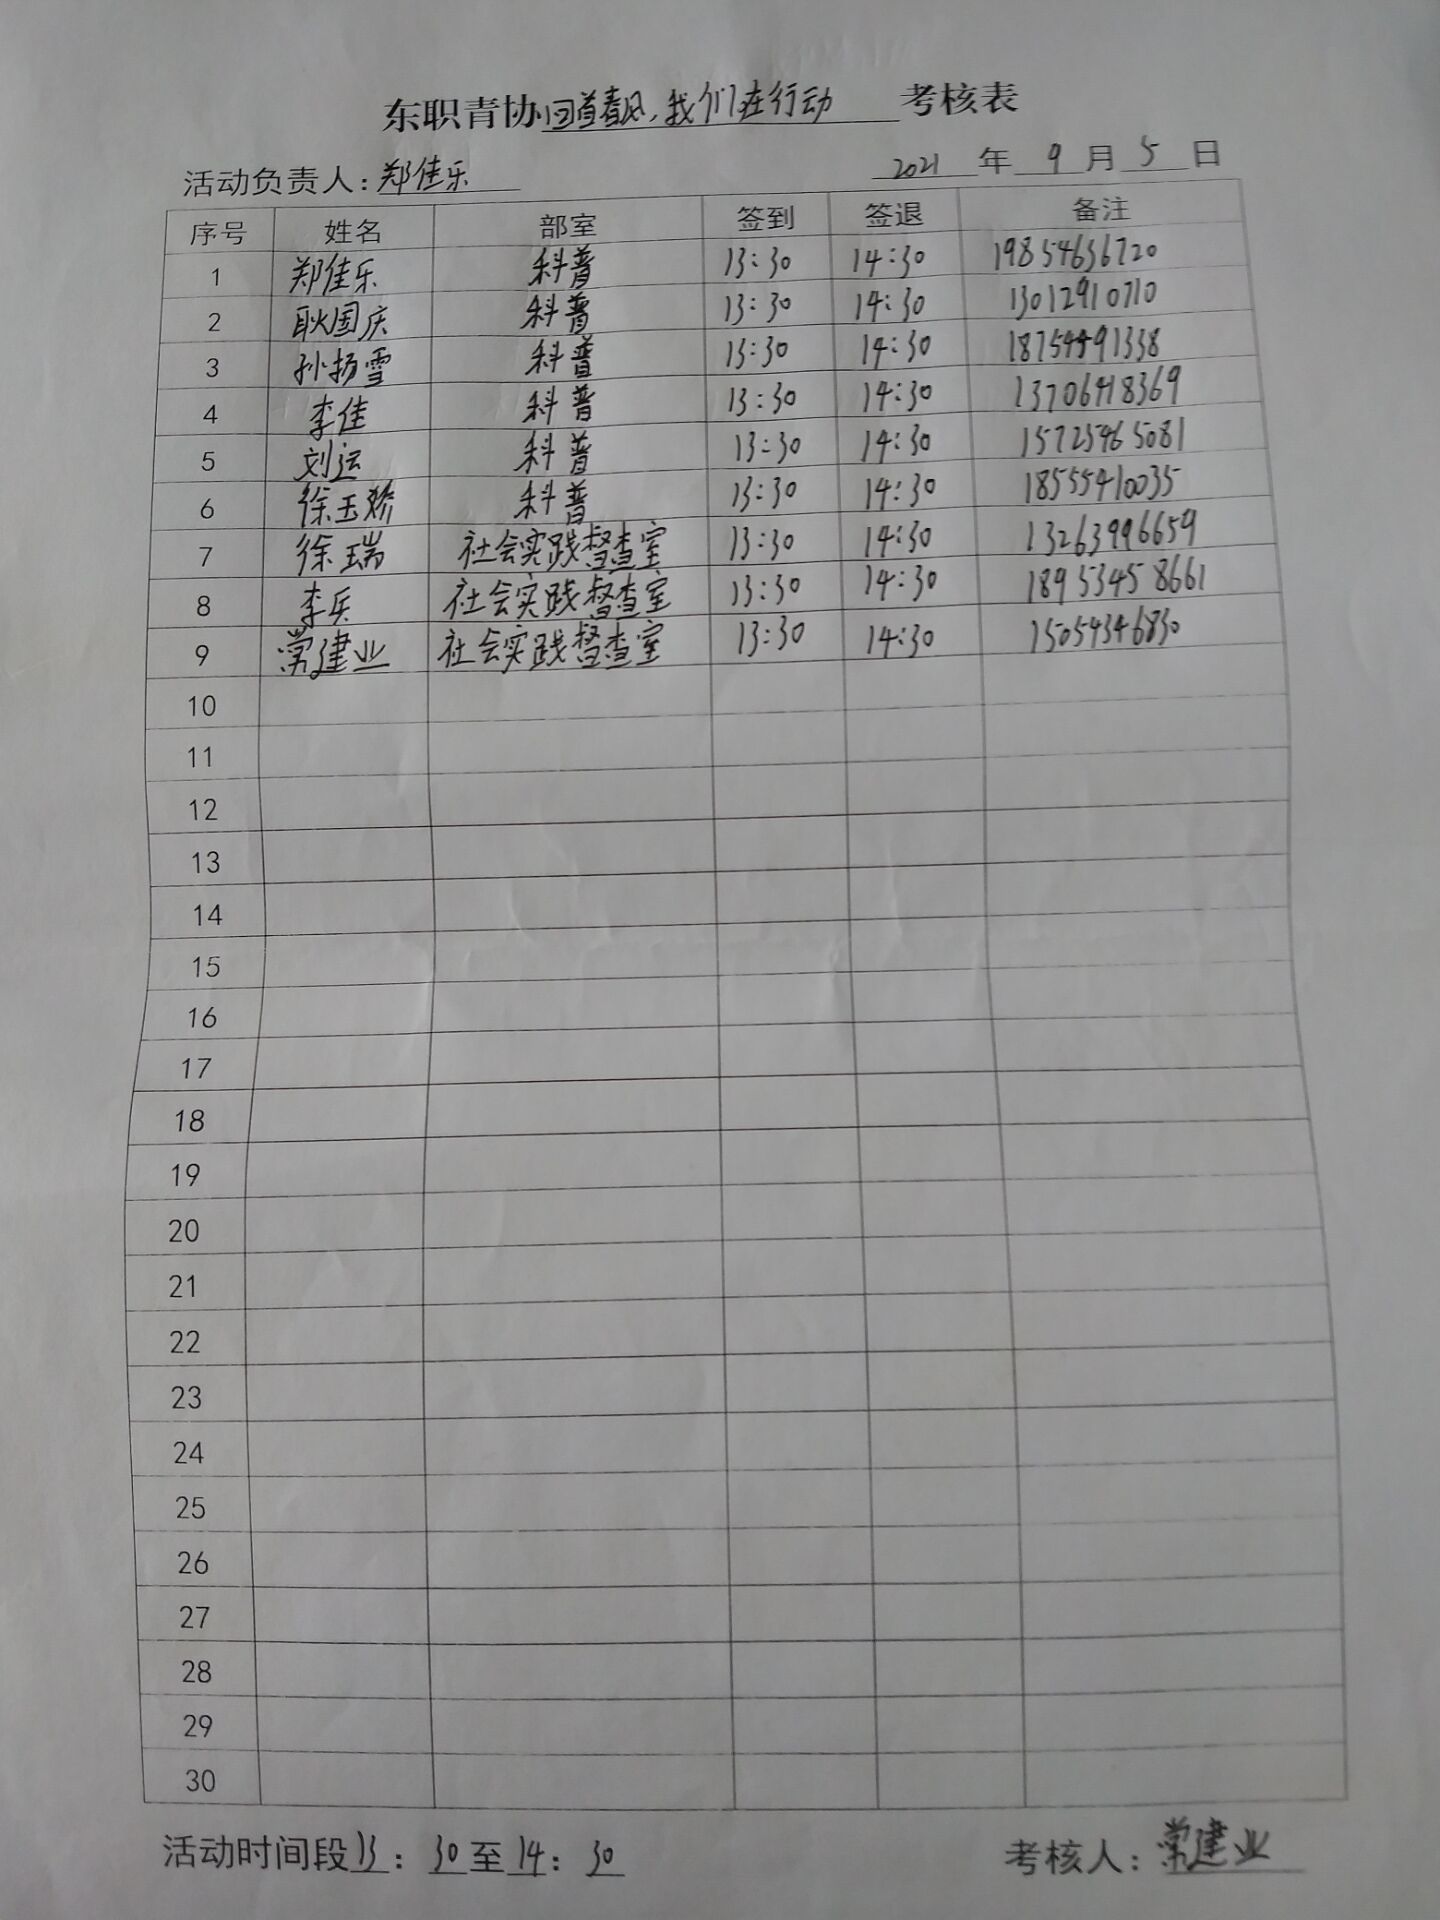 东职青协回首春风，我们在行动 考核表
活动负责人：郑佳乐 2021 年 9 月 5 日
序号 姓名 部室 签到 签退 备注
1 郑佳乐 科普 13:30 14:30 19854636720
2 耿国庆 科普 13:30 14:30 13012910710
3 孙扬雪 科普 13:30 14:30
4 李佳 科普 13:30 14:30 13706418369
5 刘运 科普 13:30 14:30 15725465081
6 徐玉娇 科普 13:30 14:30 18555410035
7 徐瑞 社会实践督查室 13:30 14:30 13263996659
8 李兵 社会实践督查室 13:30 14:30 18953458661
9 常建业 社会实践督查室 13:30 14:30 15054346830
10
11
12
13
14
15
16
17
18
19
20
21
22
23
24
25
26
27
28
29
30
活动时间段13：30至14：30 考核人：常建业